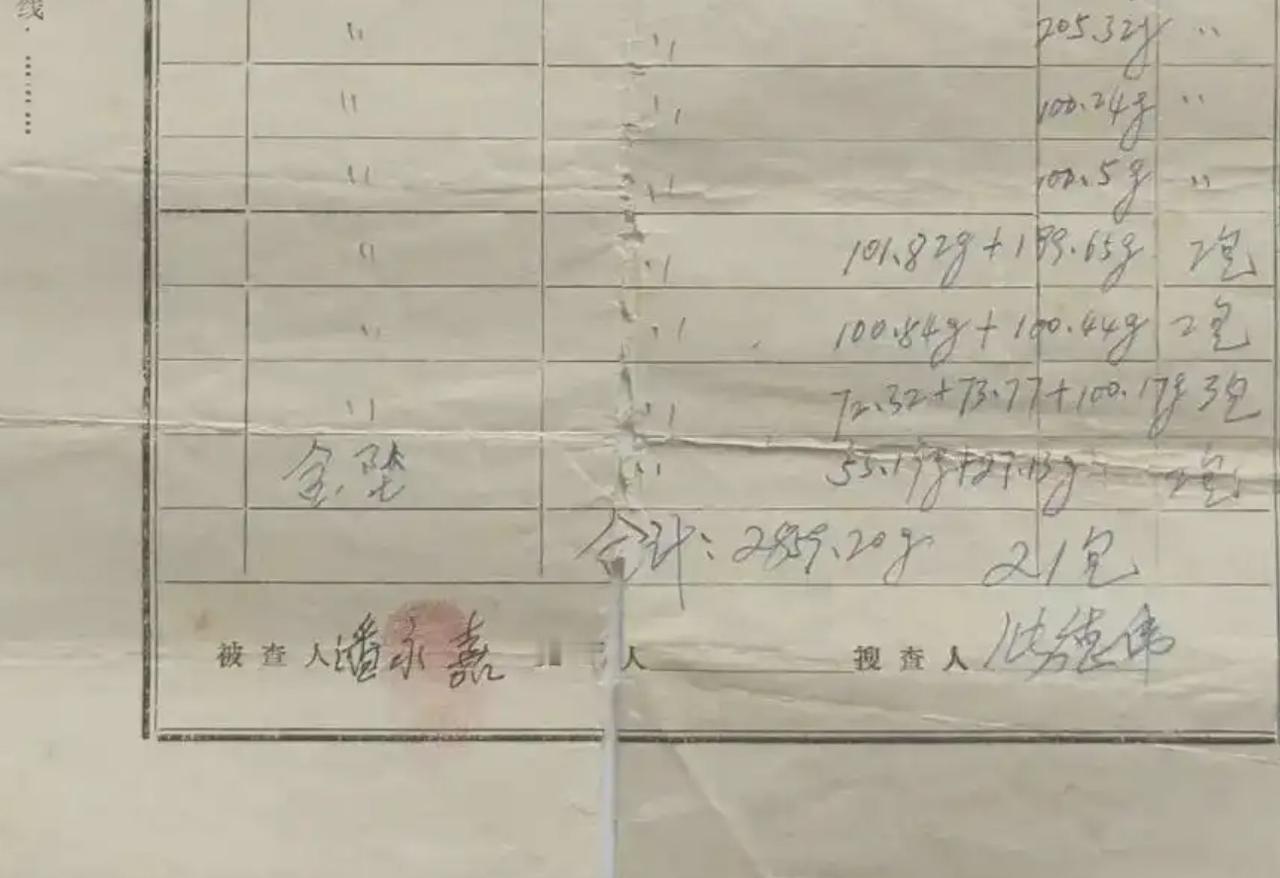 线
〃 〃 205.32g 〃
〃 〃 100.24g 〃
〃 〃 100.5g 〃
〃 〃 101.82g+199.65g 2包
〃 〃 100.84g+100.44g 2包
〃 〃 72.32+73.77+100.17g 3包
金 〃 2包
合计:2859.20g 21包
被查人潘永嘉 人 搜查人 德伟